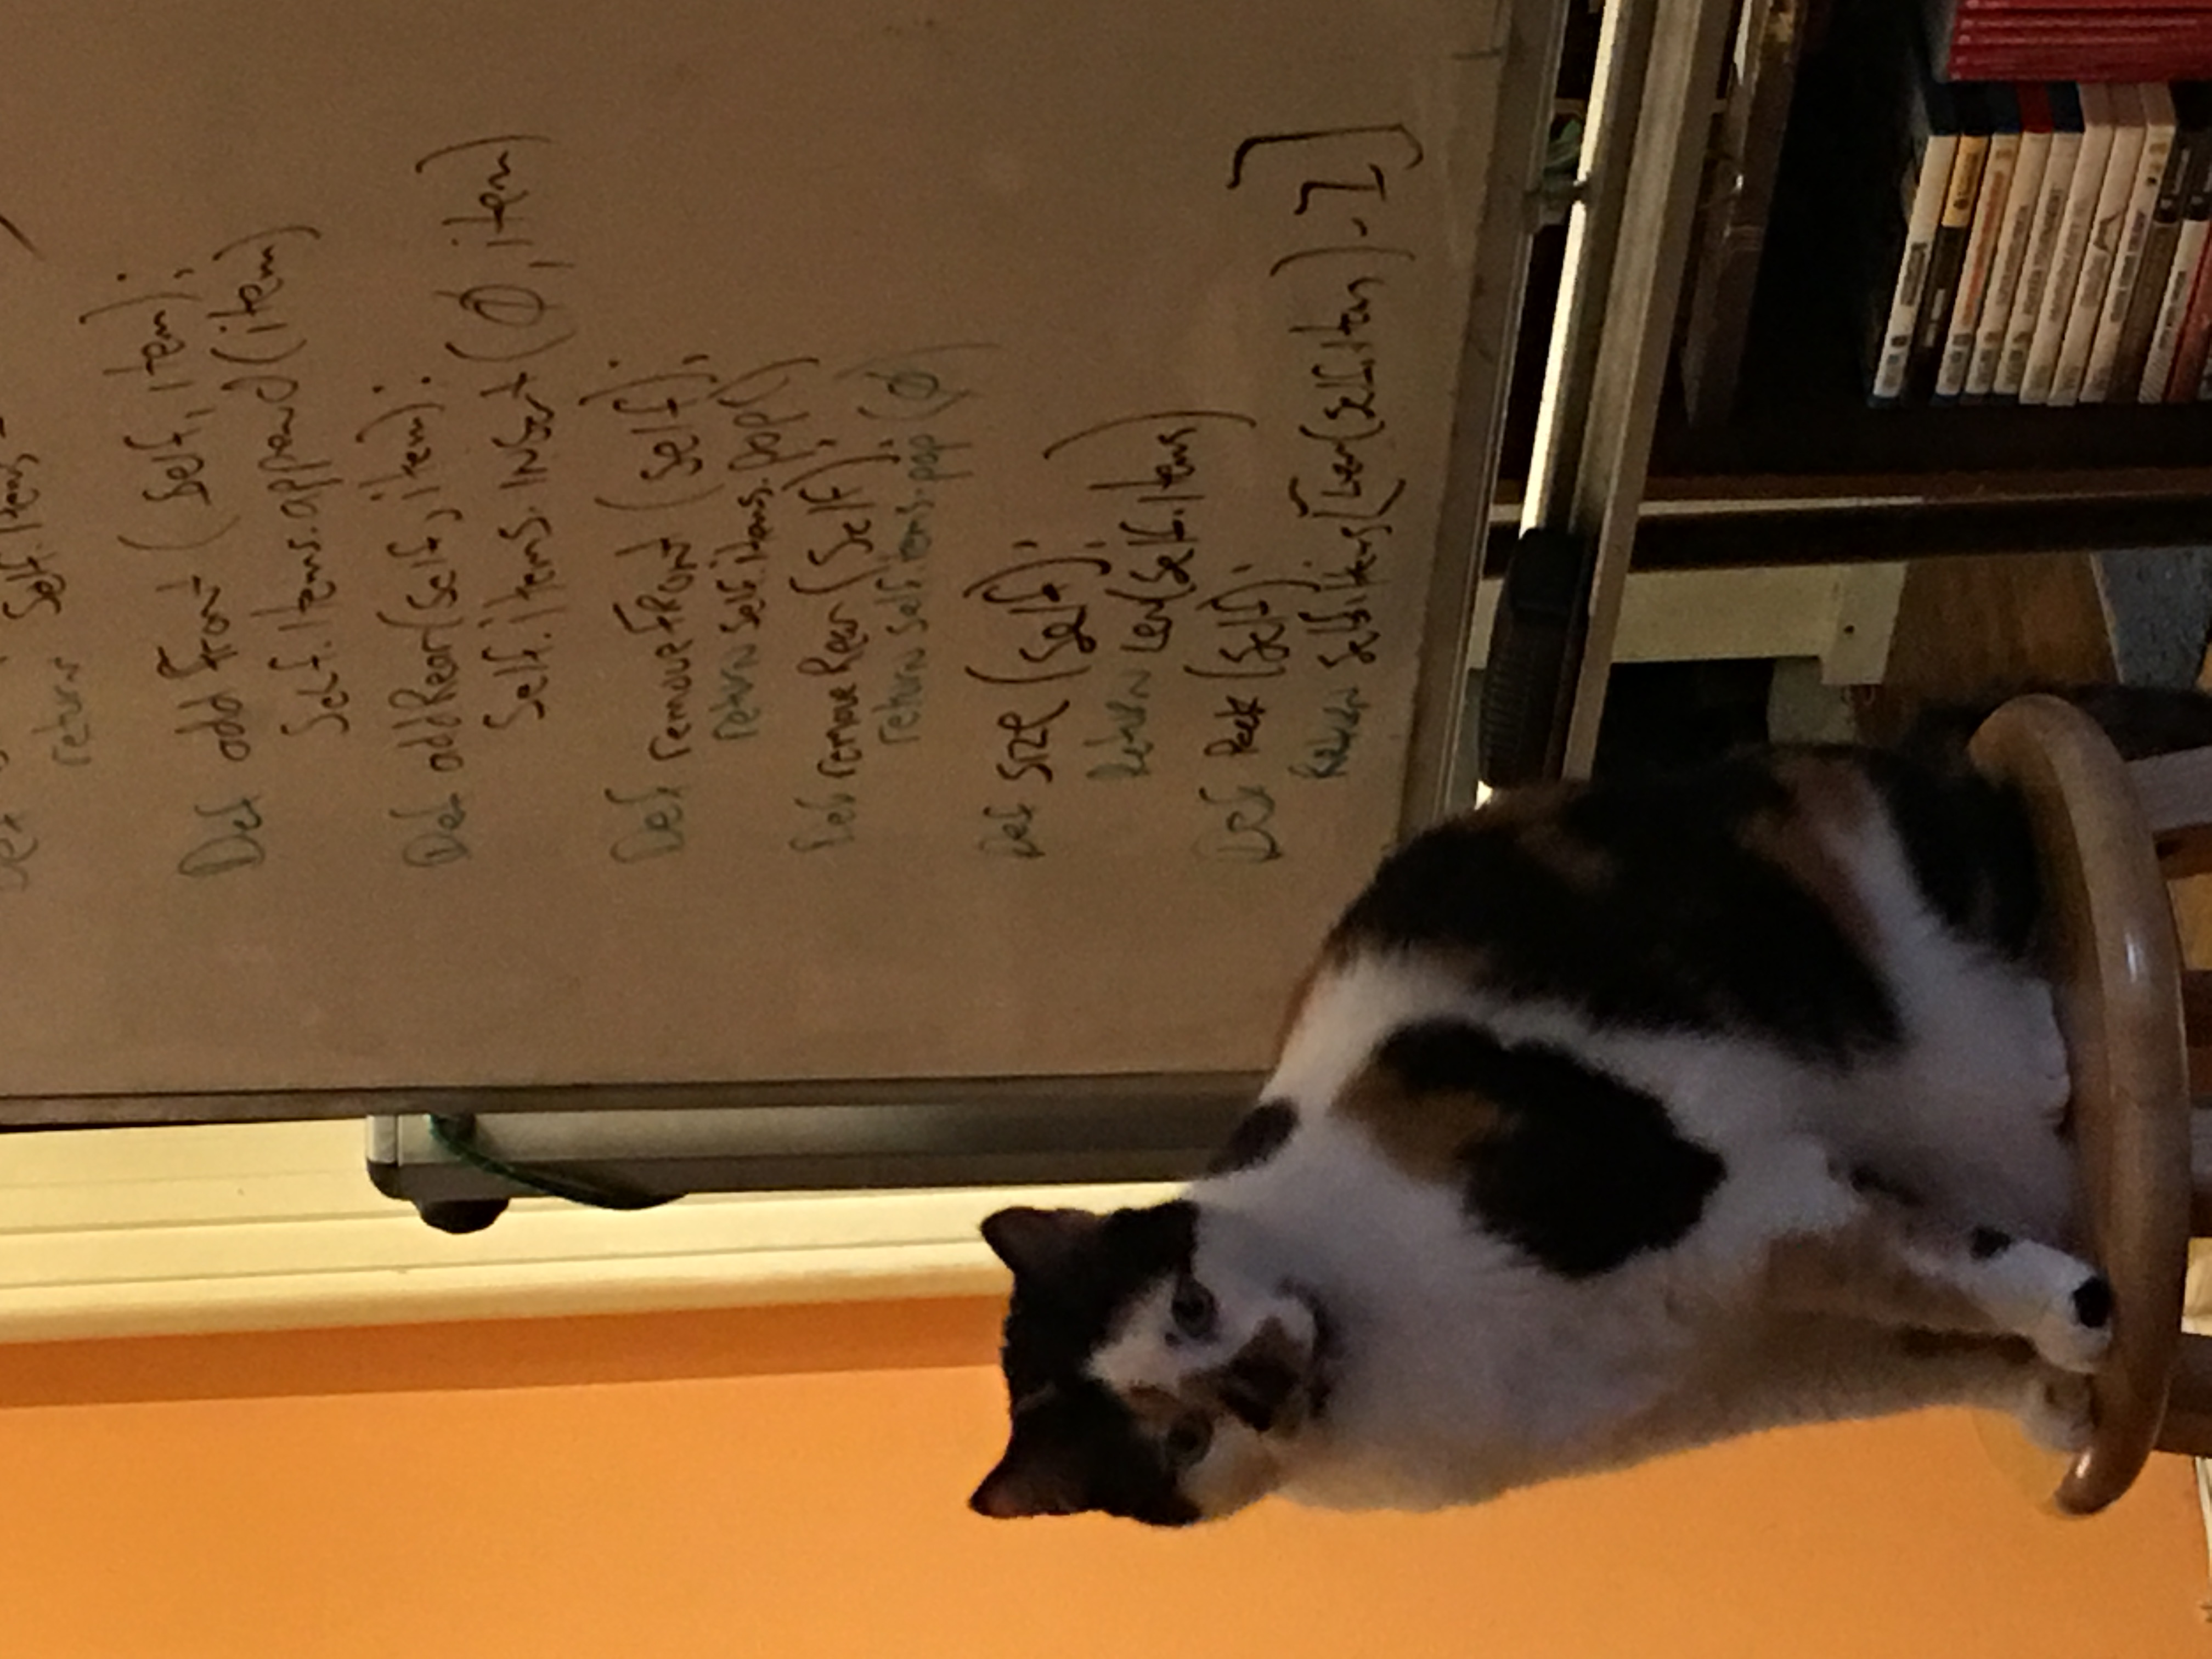 Def
return Self.Items
Def addFront (Self, item):
Self.Items.append(item)
Def addRear(Self, item):
Self.items.INsert(Ø, item)
Def removeFRont (Self):
return Self.items.pop()
Def removeRear (Self):
return self.items.pop (Ø)
Def size (Self):
Return Len(Self.Items)
Def Peek (Self):
Return Self.Items[Len(Self.Items) - 1]